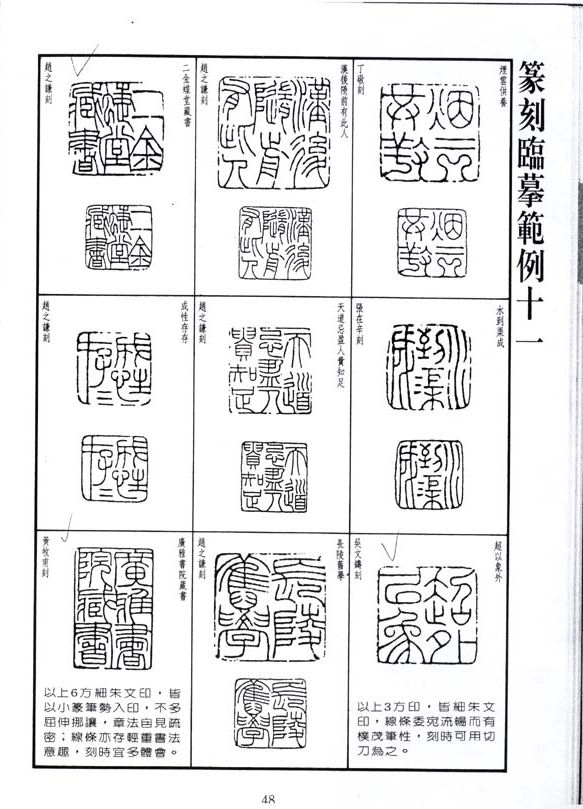 篆刻臨摹範例十一
煙雲供養
丁敬刻
漢後隋前有此人
趙之謙刻
二金蝶堂藏書
趙之謙刻
水到渠成
張在辛刻
天道忌盈人貴知足
趙之謙刻
成性存存
趙之謙刻
超以象外
吳文鑄刻
以上3方印，皆細朱文
印，線條委宛流暢而有
樸茂筆性，刻時可用切
刀為之。
長陵舊學
趙之謙刻
廣雅書院藏書
黃牧甫刻
以上6方細朱文印，皆
以小篆筆勢入印，不多
屈伸挪讓，章法自見疏
密；線條亦存輕重書法
意趣，刻時宜多體會。
48